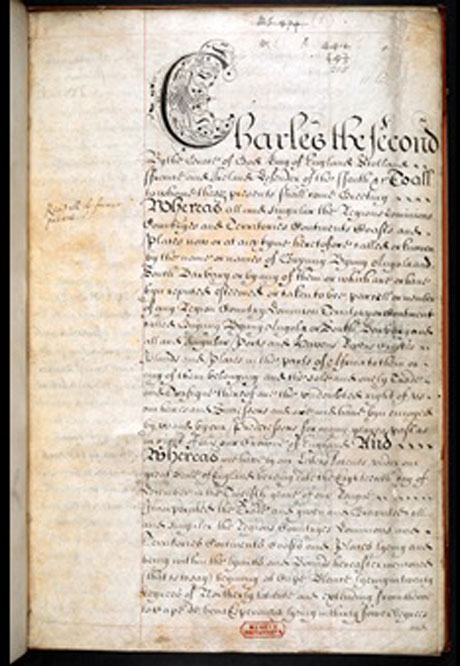 Charles the second
By the Grace of God King of England Scotland
ffrance and Ireland Defender of the ffaith &c To all
to whome these presents shall come Greeting
Whereas all and singular the Regions Dominions
Countryes and Territories Continents Coasts and
Places now or at any tyme heretofore called or knowen
by the name or names of Guynny Byny Angola and
South Barbary or by any of them or which are or have
byn reputed esteemed or taken to bee parcell or member
of any Region Country Dominion Territory or Continent
called Guynny Byny Angola or South Barbary and
all and singular Ports and Havens Rivers
Islands and Places in the parts of Affrica to them or
any of them belonging and the sole and onely Trade
and Traffique thereof are the undoubted right of us
our heires and Successors and are and have byn enjoyed
by us and by our Predecessors for many yeares past as
in right of our Crowne of England And
Whereas wee have by our Letters Patents under our
great Seale of England bearing date the Eighteenth day of
December in the Twelfth yeare of our Raigne
Incorporated the and given and Graunted all
and singuler the Regions Countryes Dominions and
Territories Continents Coasts and Places lying and
being within the lymitts and Bounds hereafter mencioned
(that is to say) begining at Cape Blanke lying in twenty
degrees of Northerly latitude and extending from thence
to Cape de bona Esperanza lying in thirty fower degrees